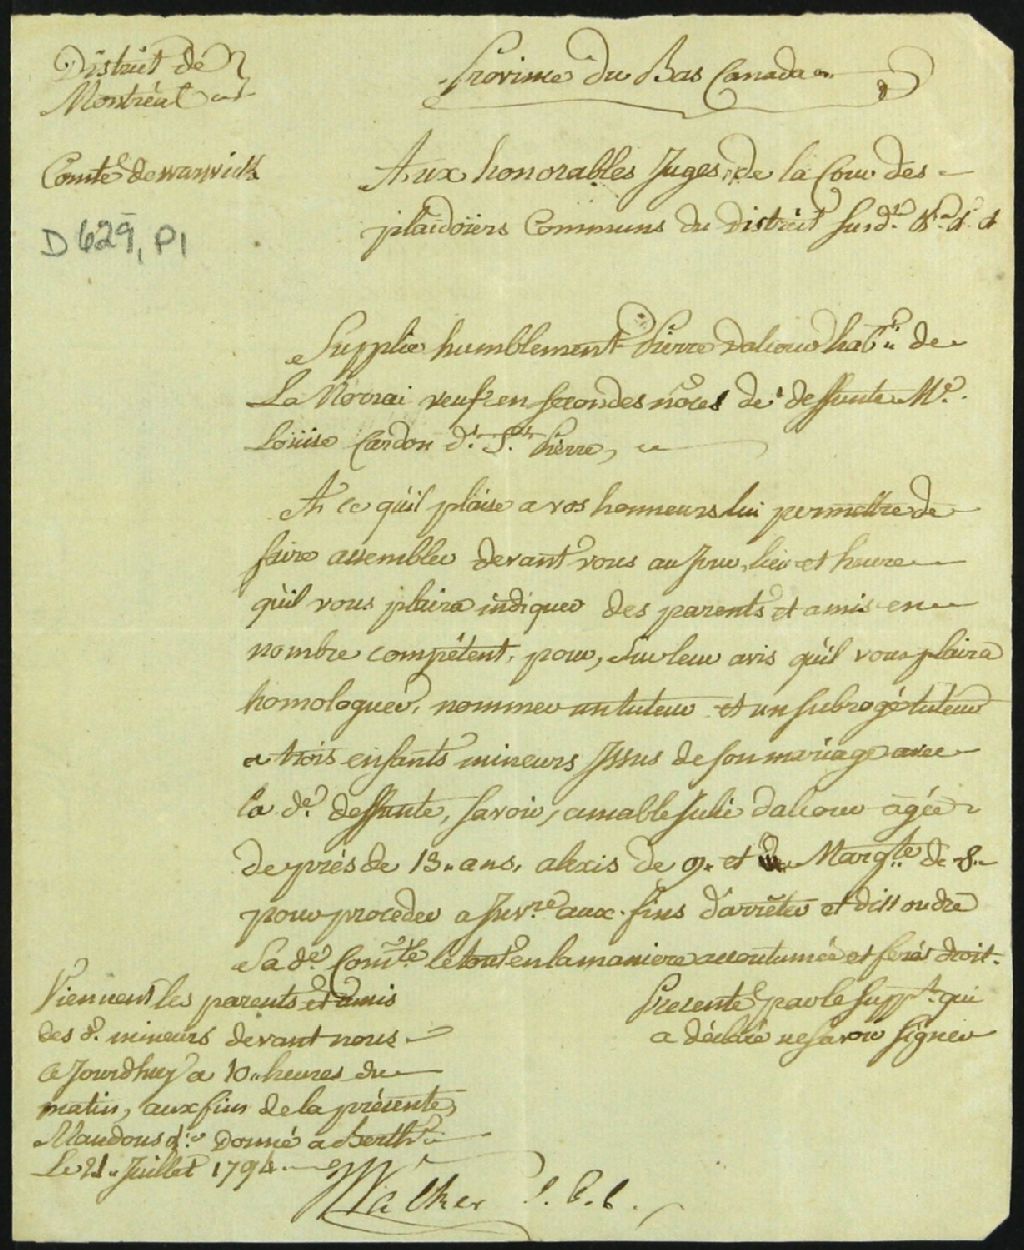 District de
Montréal
Province du Bas Canada
Comté de warwick
D 629, P1
Aux honorables Juges, de la Cour des
plaidoïers Communs du District susd.
Supplie humblement Pierre Daliour hab.t de
La Norrai veuf en secondes nôces de deffunte M.e
Louise Cardon d.t S.t Pierre,
A ce qu'il plaise a vos honneurs lui permettre de
faire assembler devant vous au jour, lieu et heure
qu'il vous plaira indiquer des parents et amis en
nombre compétent, pour, sur leur avis qu'il vous plaira
homologuer, nommer un tuteur et un subrogé tuteur
a trois enfants mineurs Issus de son mariage avec
la d.e deffunte, savoir, amable Julie daliour agée
de près de 13 ans, alexis de 9. et Marg.te de 8
pour proceder a Inv.re aux fins d'arrêter et dissoudre
Sa d.e Com.té le tout en la maniere accoutumée et ferés droit.
Presenté par le supp.t qui
a déclaré ne savoir signer
Viennent les parents et amis
des d. mineurs devant nous
ce Jourdhuy a 10 heures du
matin, aux fins de la présente,
Mandons &.a Donné a Berth.r
Le 21 Juillet 1794
Walker